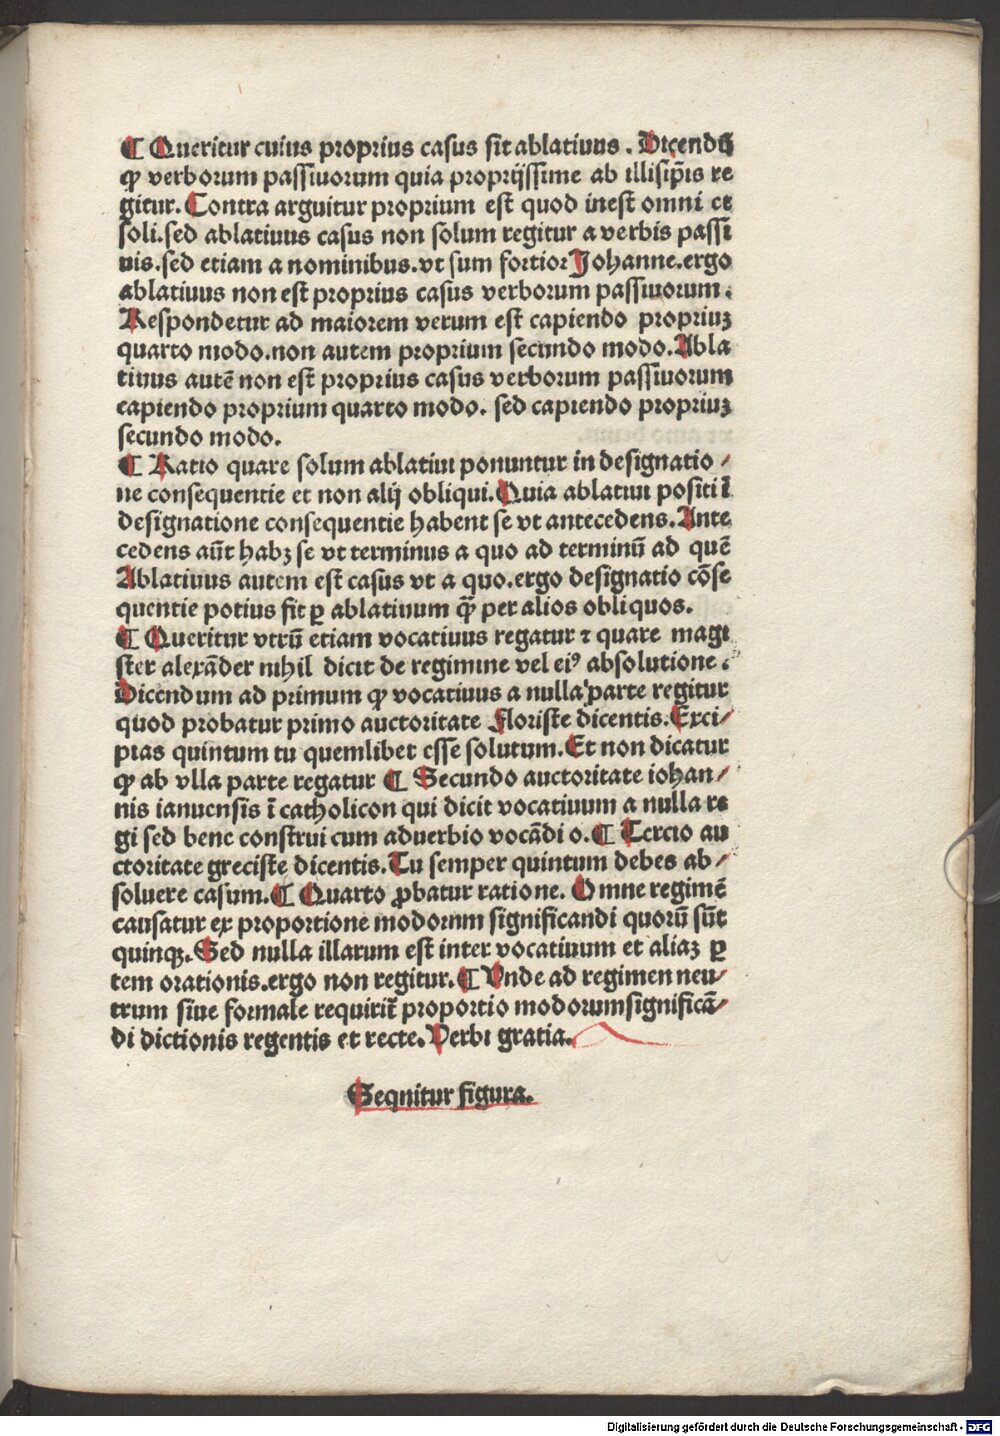 ¶ Queritur cuius proprius casus sit ablatiuus . Dicendū
ꝙ verborum passiuorum quia proprijssime ab illisip̄is re
gitur. Contra arguitur proprium est quod inest omni et
soli.sed ablatiuus casus non solum regitur a verbis passi
uis.sed etiam a nominibus.vt sum fortior Johanne.ergo
ablatiuus non est proprius casus verborum passiuorum.
Respondetur ad maiorem verum est capiendo propriuꝫ
quarto modo.non autem proprium secundo modo.Abla
tiuus autē non est proprius casus verborum passiuorum
capiendo proprium quarto modo. sed capiendo propriuꝫ
secundo modo.
¶ Ratio quare solum ablatiui ponuntur in designatio⸗
ne consequentie et non alij obliqui.Quia ablatiui positi ī
designatione consequentie habent se vt antecedens.Ante
cedens aūt habꝫ se vt terminus a quo ad terminū ad quē
Ablatiuus autem est casus vt a quo.ergo designatio cōse
quentie potius fit ꝑ ablatiuum ꝙ̄ per alios obliquos.
¶ Queritur vtrū etiam vocatiuus regatur ⁊ quare magi
ster alexāder nihil dicit de regimine vel eiꝰ absolutione.
Dicendum ad primum ꝙ vocatiuus a nulla parte regitur
quod probatur primo auctoritate Floriste dicentis.Exci⸗
pias quintum tu quemlibet esse solutum.Et non dicatur
ꝙ ab vlla parte regatur ¶ Secundo auctoritate iohan⸗
nis ianuensis ī catholicon qui dicit vocatiuum a nulla re
gi sed bene construi cum aduerbio vocādi o.¶ Tercio au
ctoritate greciste dicentis.Tu semper quintum debes ab⸗
soluere casum.¶ Quarto ꝓbatur ratione. Omne regimē
causatur ex proportione modorum significandi quorū sūt
quinqꝫ.Sed nulla illarum est inter vocatiuum et aliaꝫ ꝑ
tem orationis.ergo non regitur.¶ Vnde ad regimen neu⸗
trum siue formale requirit̄ proportio modorumsignificā⸗
di dictionis regentis et recte.Verbi gratia.
Seqnitur figura.
Digitalisierung gefördert durch die Deutsche Forschungsgemeinschaft - DFG